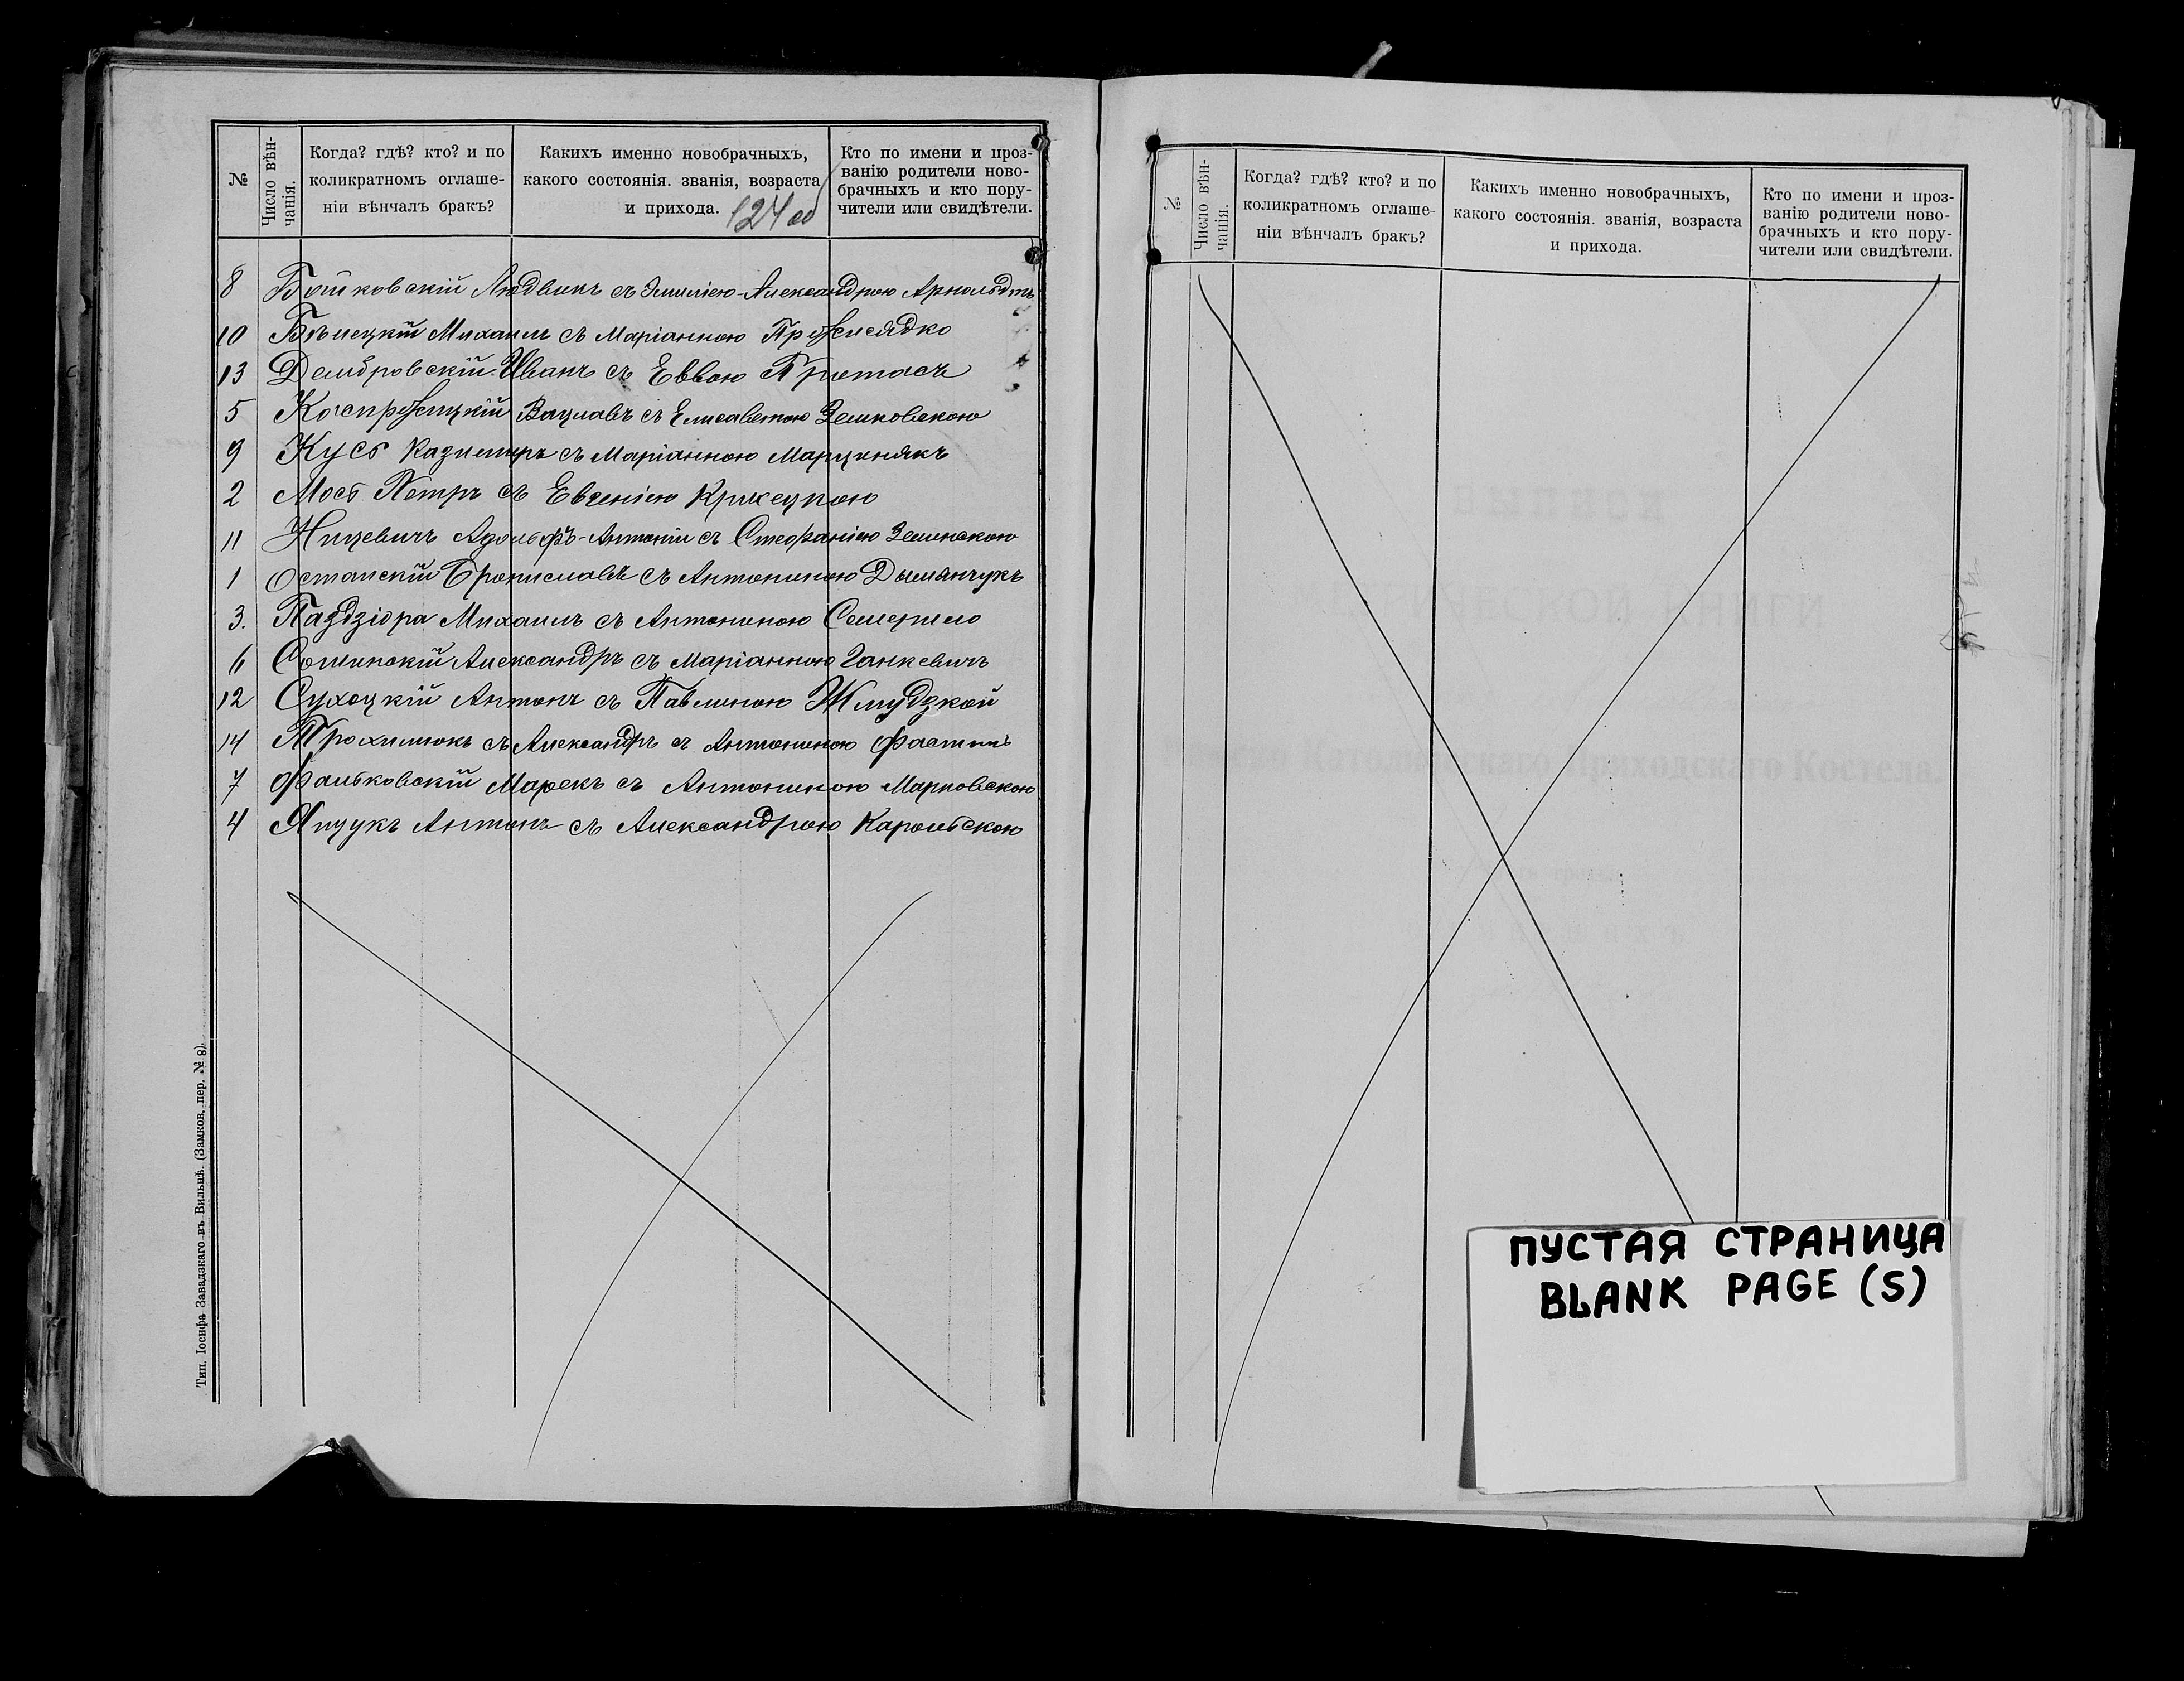 №
Число вѣн-
чанія.
Когда? гдѣ? кто? и по
коликратномъ оглаше-
ніи вѣнчалъ бракъ?
Какихъ именно новобрачныхъ,
какого состоянія. званія, возраста
и прихода.
Кто по имени и проз-
ванію родители ново-
брачныхъ и кто пору-
чители или свидѣтели.
8 Войковскій Людвикъ съ Эмиліею-Александрою Арнольдтъ
10 Бѣлецкій Михаилъ съ Маріанною
13 Дембровскій Иванъ съ Еввою
5 Коспржицкій Вацлавъ съ Елисаветою Земковскою
9 Кусь Казимиръ съ Маріанною Марцинякъ
2 Мось Петръ съ Евгеніею Крижецкою
11 Ницевичъ Адольфъ-Антоній съ Стефаніею Зелинскою
1 Остапскій Брониславъ съ Антониною Дымянчукъ
3. Паздзіора Михаилъ съ Антониною
6 Сошинскій Александръ съ Маріанною Ганкевичъ
12 Сухоцкій Антонъ съ Павлиною Жмудзкой
14 Трохимюкъ съ Александръ съ Антониною
7 Фальковскій Марекъ съ Антониною Марковскою
4 Яцукъ Антонъ съ Александрою Карольскою
Тип. Іосифа Завадзкаго въ Вильнѣ. (Замков. пер. № 8).
№
Число вѣн-
чанія.
Когда? гдѣ? кто? и по
коликратномъ оглаше-
ніи вѣнчалъ бракъ?
Какихъ именно новобрачныхъ,
какого состоянія. званія, возраста
и прихода.
Кто по имени и проз-
ванію родители ново-
брачныхъ и кто пору-
чители или свидѣтели.
ПУСТАЯ СТРАНИЦА
BLANK PAGE (S)